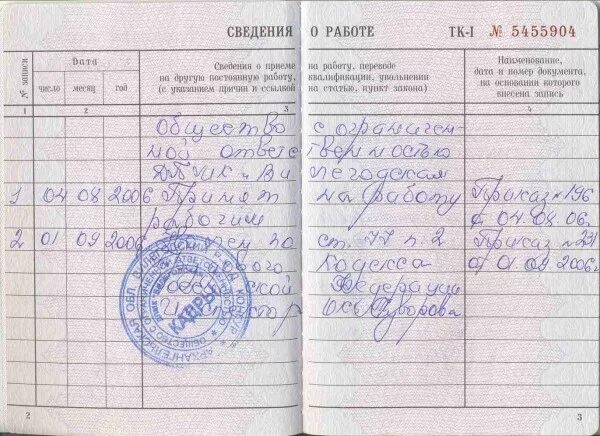 СВЕДЕНИЯ О РАБОТЕ ТК-I № 5455904
№ записи
Дата
число месяц год
Сведения о приеме на работу, переводе
на другую постоянную работу, квалификации, увольнении
(с указанием причин и ссылкой на статью, пункт закона)
Наименование,
дата и номер документа,
на основании которого
внесена запись
1 2 3 4
Общество с ограничен-
ной ответственностью
1 04 08 2006 Принят на работу Приказ №196
рабочим 04.08.06.
2 01 09 2006 по ст. 77 п. 2 Приказ №231
Кодекса от 01.09.2006г
Федерации
Суворова
КАДРЫ
2 3